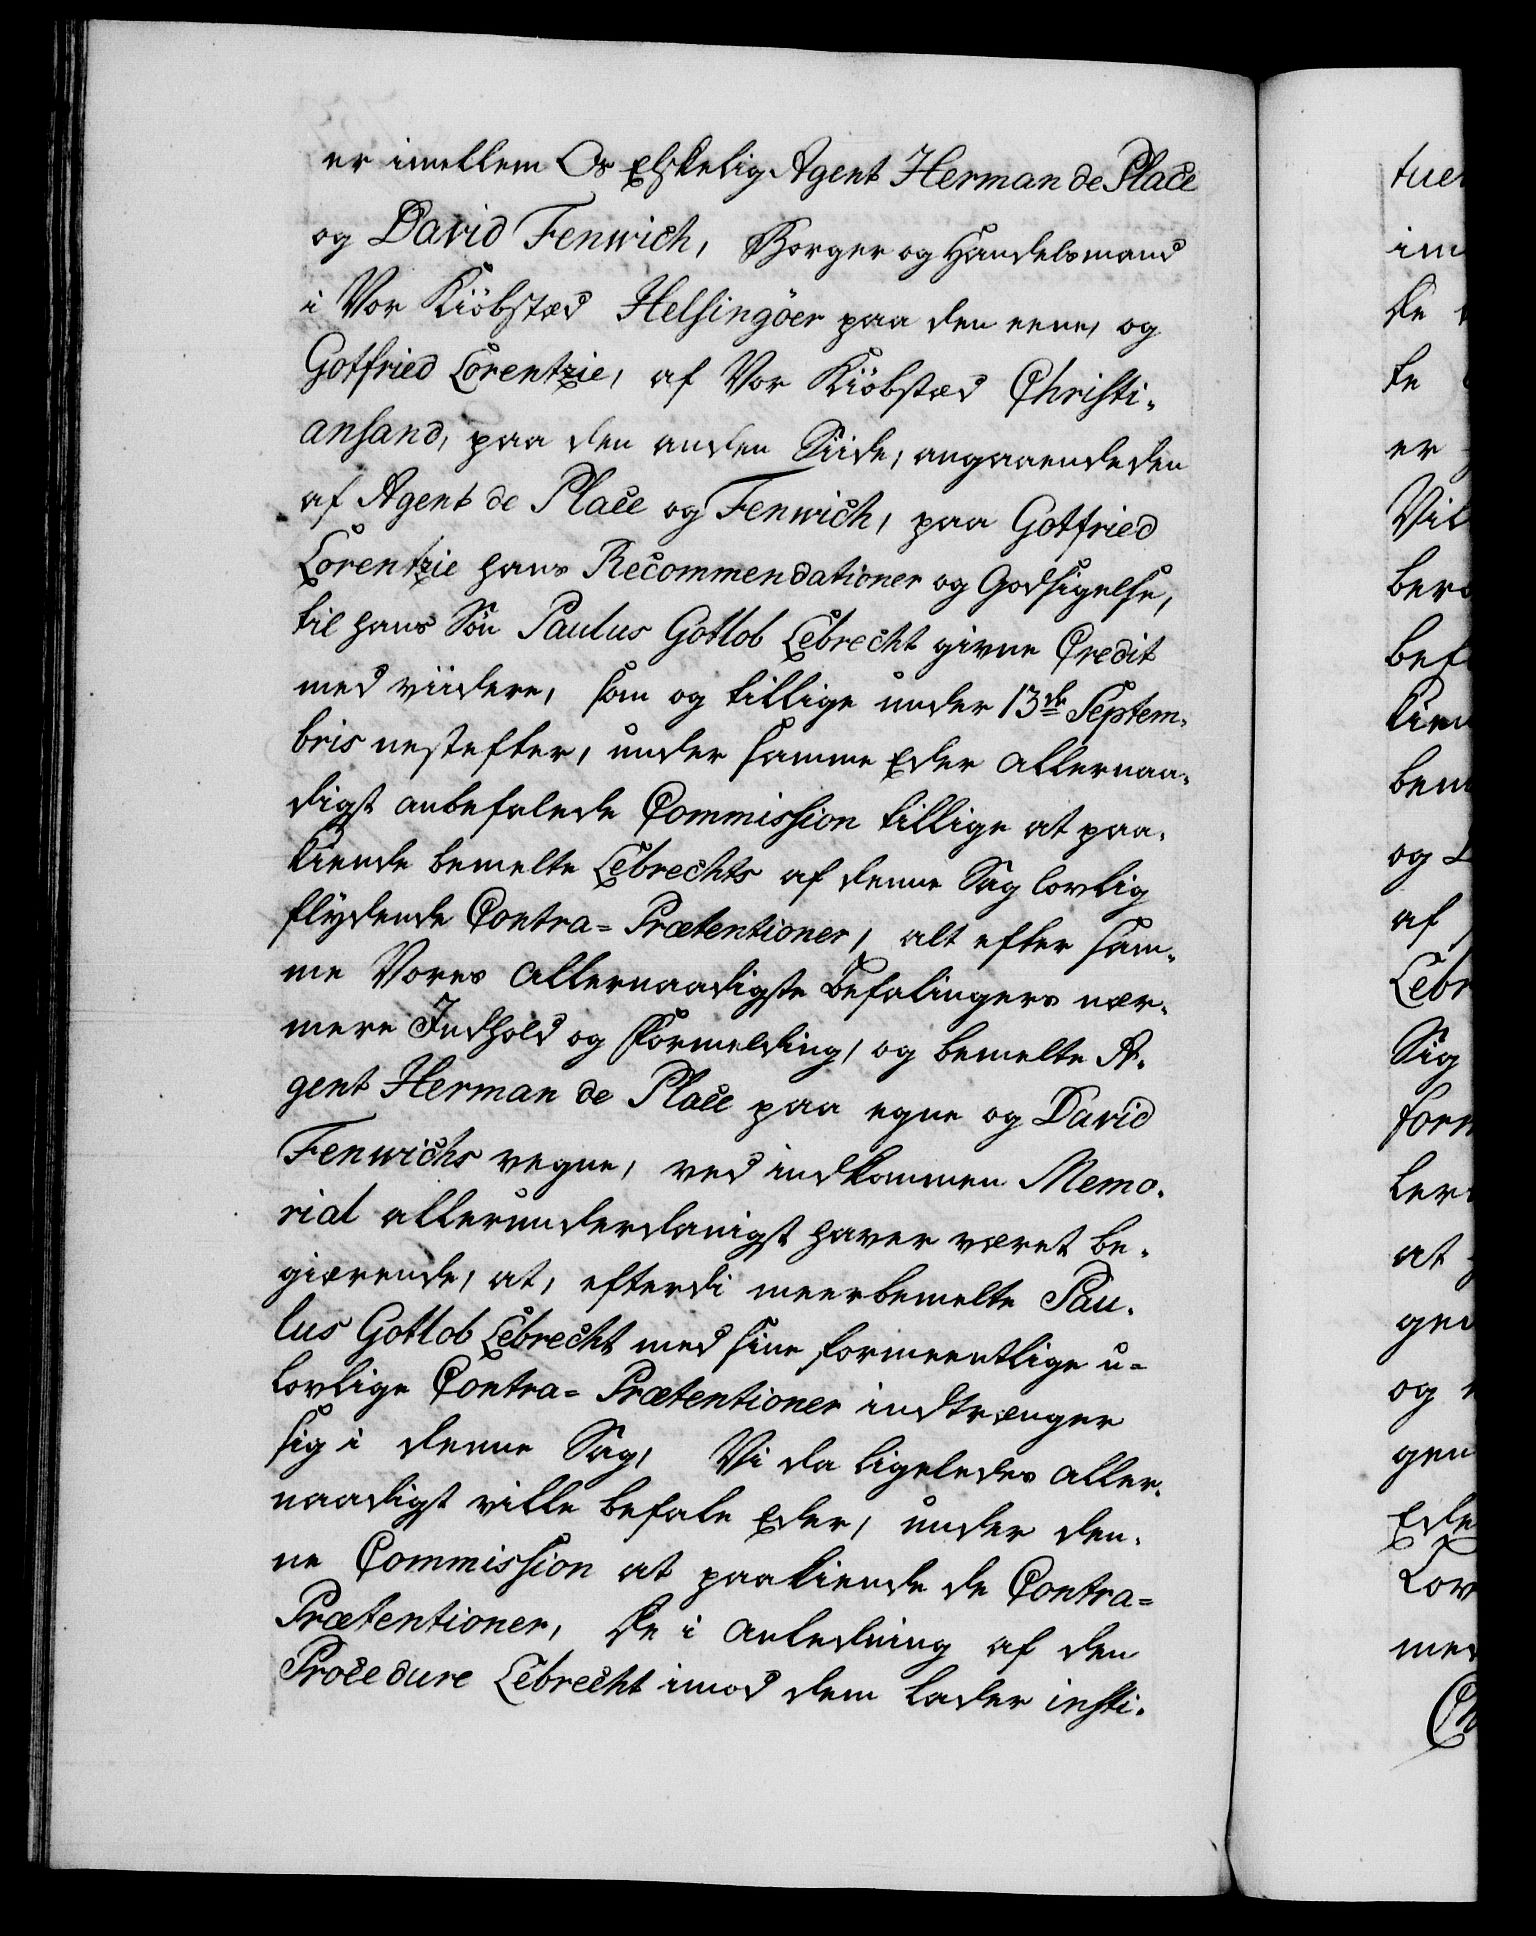 er imellem Os Elskelig Agent Herman de Place
og David Fenwich, Borger og Handelsmand
i Vor Kiöbstæd Helsingöer paa den eene, og
Gotfried Lorentzie, af Vor Kiöbstæd Christi-
ansand, paa den anden Siide, angaaende den
af Agent de Place og Fenwich, paa Gotfried
Lorentzie hans Recommendationer og Godsigelse,
til hans Søn Paulus Gotlob Lebrecht givne Credit
med viidere, som og tillige under 13de Septem-
bris nestefter, under samme Eder allernaa-
digst anbefalede Commission tillige at paa-
kiende bemelte Lebrechts af denne Sag lovlig
flydende Contra-Prætentioner, alt efter sam-
me Vores allernaadigste Befalingers nær-
mere Indhold og Formelding, og bemelte A-
gent Herman de Place paa egne og David
Fenwichs vegne, ved indkommen Memo-
rial allerunderdanigst haver været be-
giærende, at, efterdi meerbemelte Pau-
lus Gotlob Lebrecht med sine formeentlige u-
lovlige Contra-Prætentioner indtrænger
sig i denne Sag, Vi da ligeledes aller-
naadigst ville befale Eder, under den-
ne Commission at paakiende de Contra-
Prætentioner, de i anledning af den
Procedure Lebrecht imod dem lader insti-